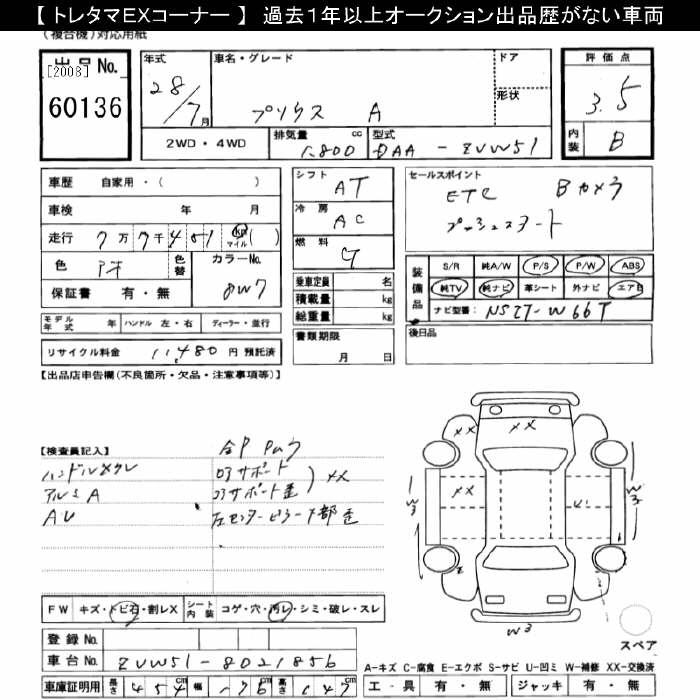 【トレタマEXコーナー】 過去1年以上オークション出品歴がない車両
(複合機)対応用紙
出品No. [2008] 60136
年式 28/7月
車名・グレード プリウス A
ドア
形状
評価点 3.5
内装 B
2WD・4WD
排気量 1,800 cc
型式 DAA - ZVW51
車歴 自家用・( )
車検 年 月
走行 7万7千451 km マイル ( )
色
色替
カラーNo. 8W7
保証書 有・無
モデル年式 年 ハンドル 左・右 ディーラー・並行
リサイクル料金 11,480 円 預託済
シフト AT
冷房 AC
燃料 G
乗車定員 名
積載量 kg
総重量 kg
書類期限 月 日
セールスポイント
ETC Bカメラ
プッシュスタート
装備品 S/R 純A/W P/S P/W ABS
純TV 純ナビ 革シート 外ナビ エアB
ナビ型番 NSZT-W66T
後日品
【出品店申告欄(不良箇所・欠品・注意事項等)】
【検査員記入】
ハンドルスレ
アルミA
右Fサポート
右Fサポート歪 XX
左センターピラー下部歪
XX XX
XX
W3 W3
W3
FW キズ・トビ石・割レX
シート内装 コゲ・穴・汚レ・シミ・破レ・スレ
スペア
登録No.
車台No. ZVW51-8021856
車庫証明用 長さ 454cm 幅 176cm 高さ 147cm
A-キズ C-腐食 E-エクボ S-サビ U-凹ミ W-補修 XX-交換済
工具 有・無 ジャッキ 有・無